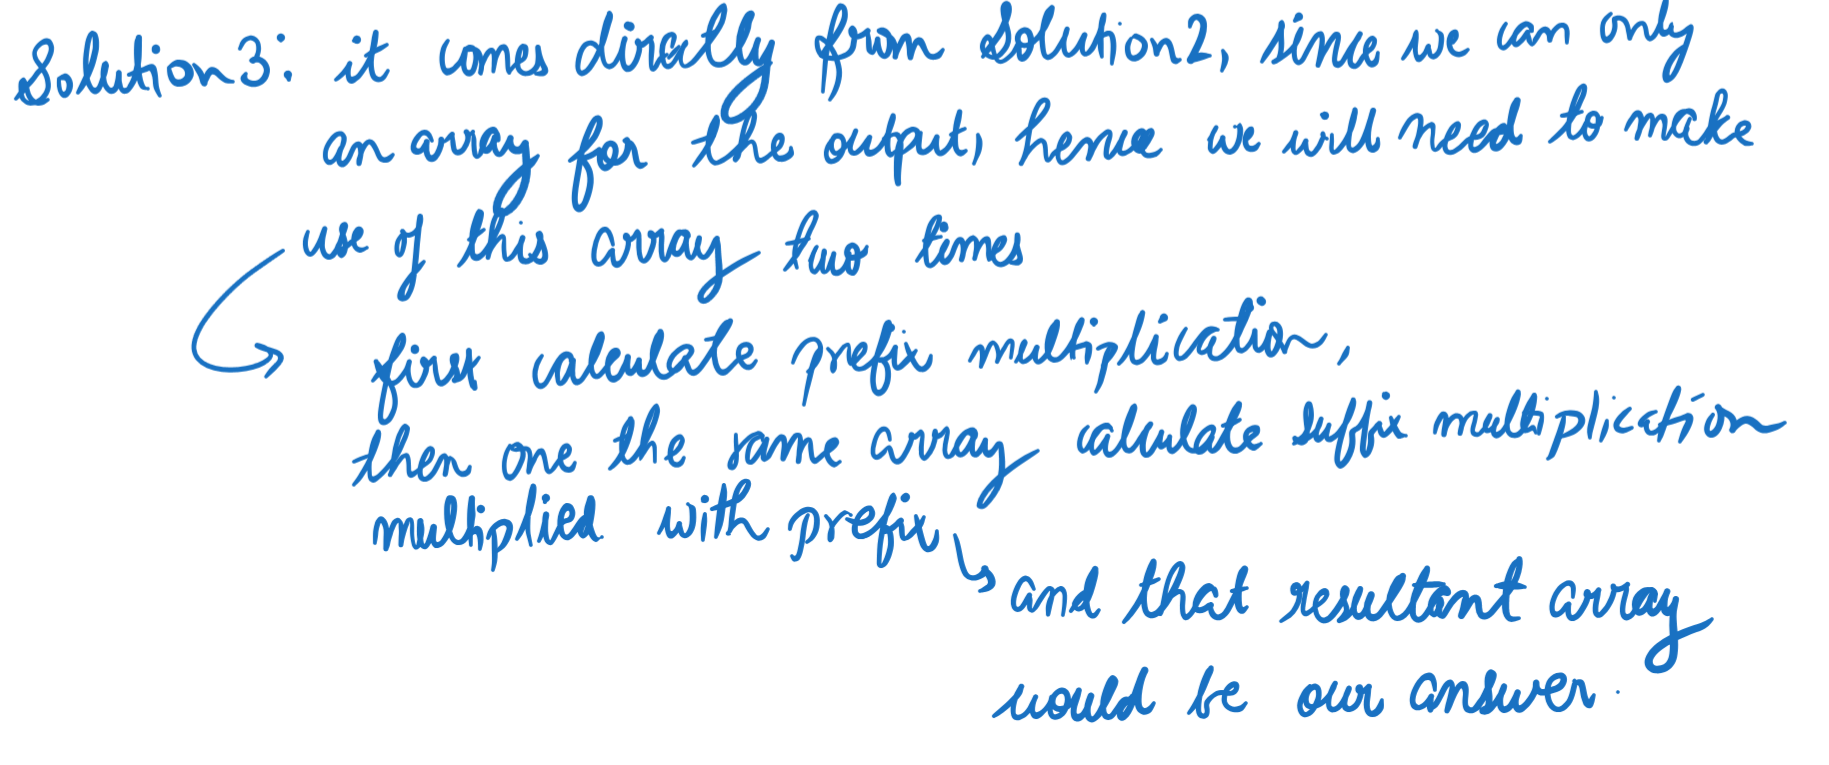 Solution3: it comes directly from Solution2, since we can only
an array for the output, hence we will need to make
use of this array two times
first calculate prefix multiplication,
then one the same array calculate suffix multiplication
multiplied with prefix
and that resultant array
would be our answer.